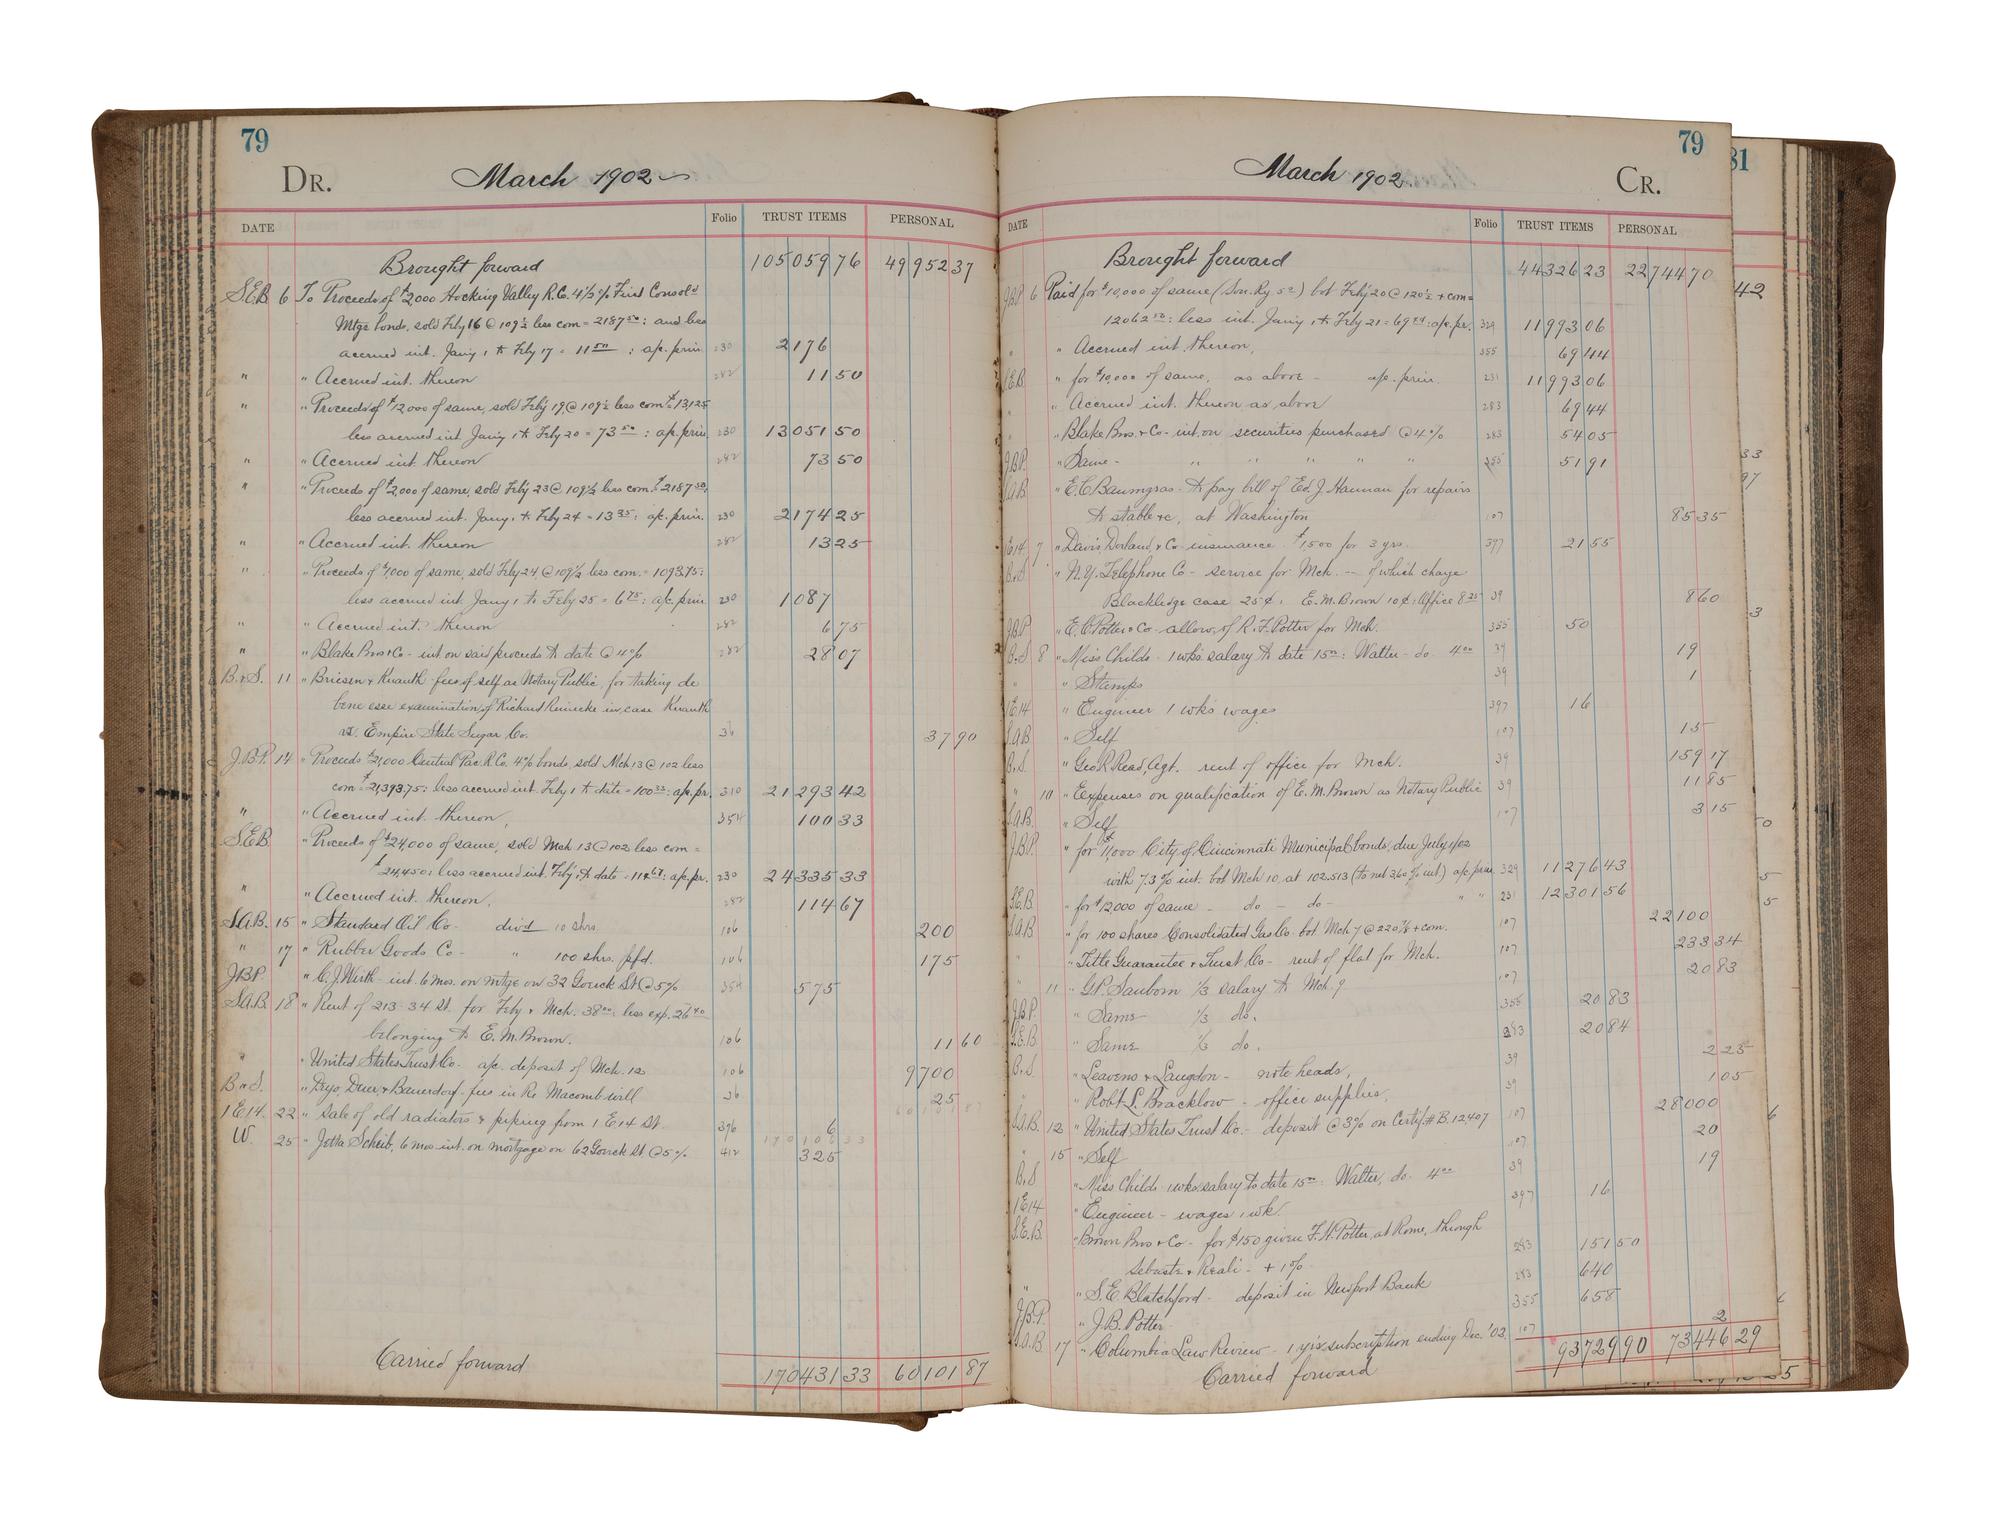 79
DR. March 1902
DATE Folio TRUST ITEMS PERSONAL
Brought forward 105059 76 49952 37
S.E.B. 6 To Proceeds of $2,000 Hocking Valley R.Co. 4½% First Consold
Mtge bonds, sold Feby 16 @ 109½ less com = 2187.50: and less
accrued int. Jany 1 to Feby 17 = 11.50 : a/c. prin. 230 2176
" " Accrued int. thereon 282 11 50
" " Proceeds of $12,000 of same, sold Feby 19 @ 109½ less com = $13,125
less accrued int. Jany 1 to Feby 20 = 73.50 : a/c. prin. 230 13051 50
" " Accrued int. thereon 282 73 50
" " Proceeds of $2,000 of same, sold Feby 23 @ 109½ less com. $2187.50,
less accrued int. Jany 1 to Feby 24 = 13.25: a/c. prin. 230 2174 25
" " Accrued int. thereon 282 13 25
" " Proceeds of $1,000 of same, sold Feby 24, @ 109½ less com. = 1093.75:
less accrued int. Jany 1 to Feby 25 = 6.75: a/c. prin. 230 1087
" " Accrued int. thereon 282 6 75
" " Blake Bros & Co - int on said proceeds to date @ 4% 282 28 07
B. & S. 11 " Briesen & Knauth fees of self as Notary Public, for taking de
bene esse examination of Richard Reinecke in case Knauth
vs. Empire State Sugar Co. 36 37 90
J.B.P. 14 " Proceeds $21,000 Central Pac. R.Co. 4% bonds, sold Mch 13 @ 102 less
com = $21,393.75: less accrued int. Feby 1 to date = 100.33: a/c. pr. 310 21293 42
" " Accrued int. thereon, 354 100 33
S.E.B. " Proceeds of $24,000 of same, sold Mch 13 @ 102 less com =
$24,450: less accrued int. Feby 1 to date = 114.67: a/c. pr. 230 24335 33
" " Accrued int. thereon, 282 114 67
S.A.B. 15 " Standard Oil Co - divd 10 shrs. 106 200
" 17 " Rubber Goods Co - " 100 shrs. pfd. 106 175
J.B.P. " C.J. Wirth - int. 6 mos. on mtge on 32 Goerck St @ 5% 354 575
S.A.B. 18 " Rent of 213-34 St. for Feby & Mch. 38.00: less exp. 26.40
belonging to E.M. Brown. 106 11 60
" " United States Trust Co. a/c. deposit of Mch. 12 106 9700
B & S. " Deyo, Duer & Bauerdorf - fees in Re Macomb will 36 25
1 E 14. 22 " Sale of old radiators & piping from 1 E 14 St. 396 6
W. 25 " Jetta Scheib, 6 mos. int. on mortgage on 62 Goerck St @ 5% 412 325
Carried forward 170431 33 60101 87
79
March 1902. CR.
DATE Folio TRUST ITEMS PERSONAL
Brought forward 44326 23 22744 70
J.B.P. 6 Paid for $10,000 of same (Sou. Ry 5s) bot Feby 20 @ 120½ + com =
12062.50: less int. Jany 1 to Feby 21 = 69.44: a/c. pr. 329 11993 06
" " Accrued int. thereon, 355 69 44
S.E.B. " for $10,000 of same, as above - a/c. prin. 231 11993 06
" " Accrued int. thereon as above 283 69 44
" " Blake Bros. & Co - int. on securities purchased @ 4% 283 54 05
J.B.P. " Same - " " " " " 355 51 91
S.A.B. " E.C. Baumgras - to pay bill of Ed. J. Hannan for repairs
to stable &c, at Washington 107 85 35
1 E 14 7 " Davis, Dorland, & Co - insurance $1500 for 3 yrs. 397 21 55
B. & S. " N.Y. Telephone Co - service for Mch. - of which charge
Blackledge case 25¢: E.M. Brown 10¢: Office 8.25 39 8 60
J.B.P. " E.C. Potter & Co - allow. of R.F. Potter for Mch. 355 50
B. & S 8 " Miss Childs - 1 wk's salary to date 15.00: Walter - do. 4.00 39 19
" " Stamps 39 1
1 E 14 " Engineer 1 wk's wages 397 16
S.A.B " Self 107 15
B. & S. " Geo R. Read, Agt. rent of office for Mch. 39 159 17
" 10 " Expenses on qualification of E.M. Brown as Notary Public 39 11 85
S.A.B. " Self 107 3 15
J.B.P. " for $11,000 City of Cincinnati Municipal bonds, due July 1/02
with 7.3% int. bot Mch 10, at 102.513 (to net 3.60% int) a/c prin 329 11276 43
S.E.B. " for $12000 of same - do - do - " " 231 12301 56
S.A.B " for 100 shares Consolidated Gas Co. bot Mch 7 @ 220⅞ + com. 107 22100
" " Title Guarantee & Trust Co - rent of flat for Mch. 107 233 34
" 11 " G.P. Sanborn 1/3 salary to Mch. 9 107 20 83
J.B.P. " Same 1/3 do. 355 20 83
S.E.B. " Same 1/3 do. 283 20 84
B. & S " Leavens & Langdon - note heads, 39 2 25
" " Robt. L. Bracklow - office supplies, 39 1 05
S.A.B. 12 " United States Trust Co. - deposit @ 3% on Certif. # B. 12,407 107 28000
" 15 " Self 107 20
B. & S " Miss Childs - 1 wk's salary to date 15.00: Walter, do. 4.00 39 19
1 E 14 " Engineer - wages 1 wk. 397 16
S.E.B. " Brown Bros & Co - for $150 given F.H. Potter, at Rome, through
Sebasti & Reali - + 1% 283 151 50
" " S.E. Blatchford - deposit in Newport Bank 283 640
J.B.P. " J.B. Potter 355 658
S.A.B 17 " Columbia Law Review - 1 yr's subscription ending Dec. '02. 107 2
Carried forward 93729 90 73446 29
81